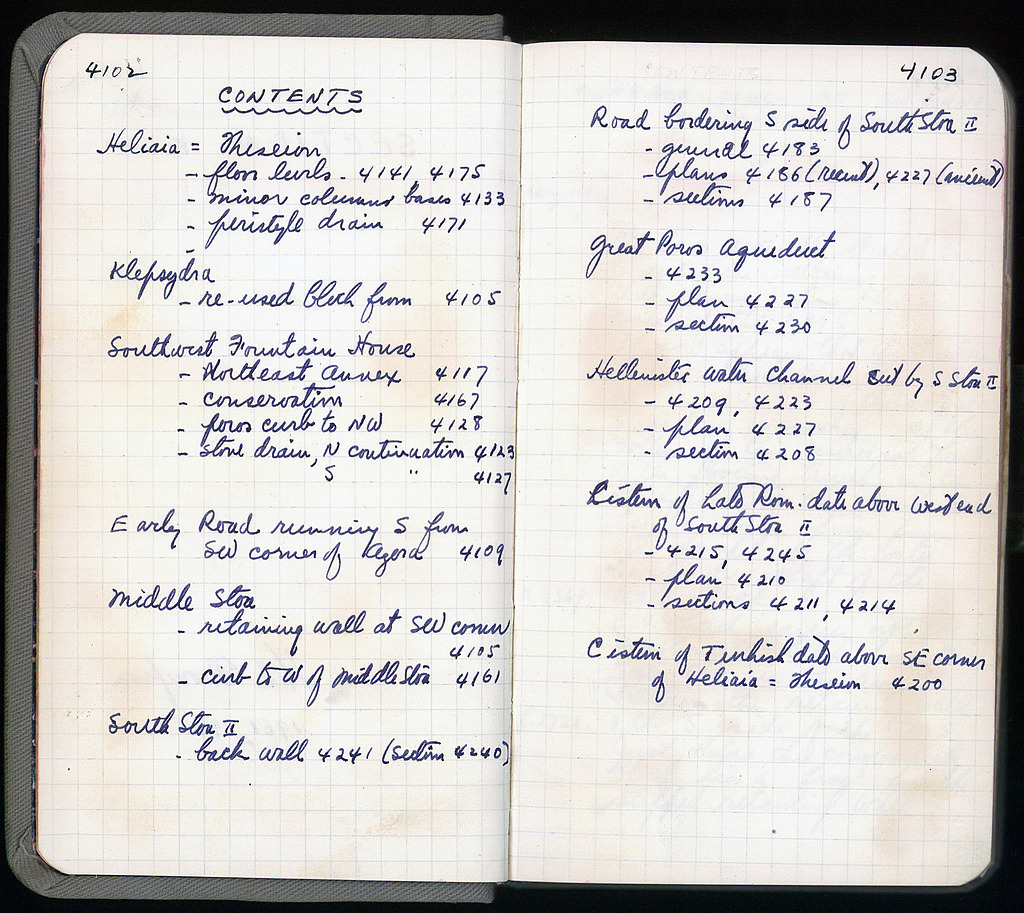 4102
CONTENTS
Heliaia = Theseion
- floor levels - 4141, 4175
- minor columns bases 4133
- peristyle drain 4171
Klepsydra
- re-used block from 4105
Southwest Fountain House
- Northeast Annex 4117
- conservation 4167
- poros curb to NW 4128
- stone drain, N continuation 4123
S " 4127
Early Road running S from
SW corner of Agora 4109
Middle Stoa
- retaining wall at SW corner
4105
- curb to W of Middle Stoa 4161
South Stoa II
- back wall 4241 (section 4240)
4103
Road bordering S side of South Stoa II
- general 4183
- plans 4186 (recent), 4227 (ancient)
- sections 4187
Great Poros Aqueduct
- 4233
- plan 4227
- section 4230
Hellenistic water channel cut by S Stoa II
- 4209, 4223
- plan 4227
- section 4208
Cistern of Late Rom. date above west end
of South Stoa II
- 4215, 4245
- plan 4210
- sections 4211, 4214
Cistern of Turkish date above SE corner
of Heliaia = Theseion 4200